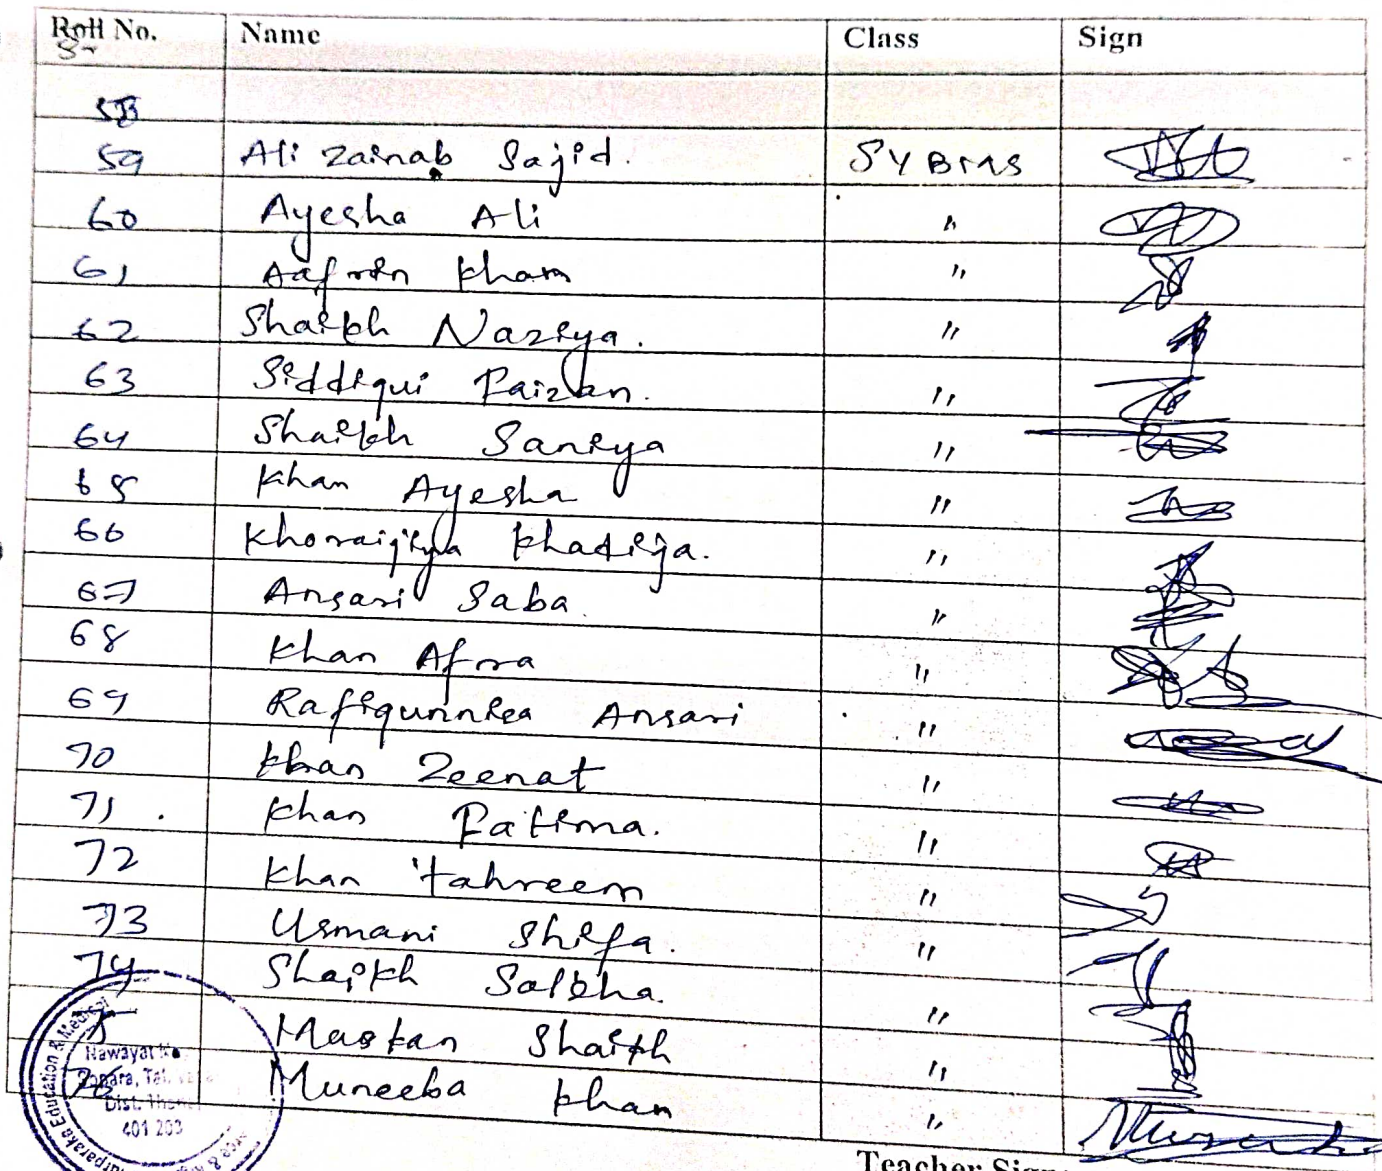 Roll No. Name Class Sign
58
59 Ali Zainab Sajid. SYBMS
60 Ayesha Ali "
61 Aafrin Khan "
62 Shaikh Naziya. "
63 Siddiqui Faizan. "
64 Shaikh Saniya "
65 Khan Ayesha "
66 Khadija. "
67 Ansari Saba "
68 Khan Afra "
69 Ansari "
70 Khan Zeenat "
71 Khan Fatima. "
72 Khan tahreem "
73 Usmani Shifa. "
74 Shaikh "
75 Muskan Shaikh "
76 Muneeba Khan "
Education & Medical
Nawayat
Sopara, Tal.
Dist. Thane
401 203
Teacher